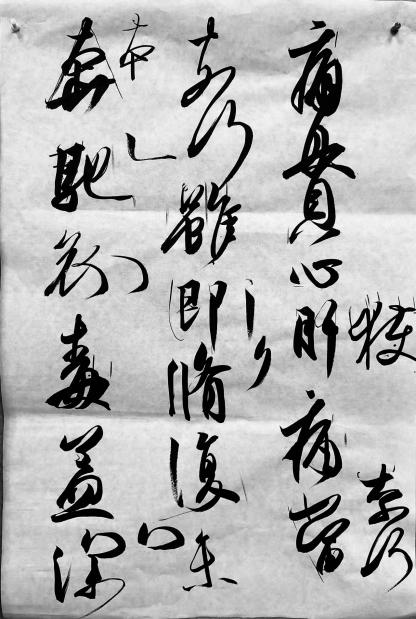 獲奈何
痛貫心肝痛當
奈何雖即脩復未
奔馳哀毒益深